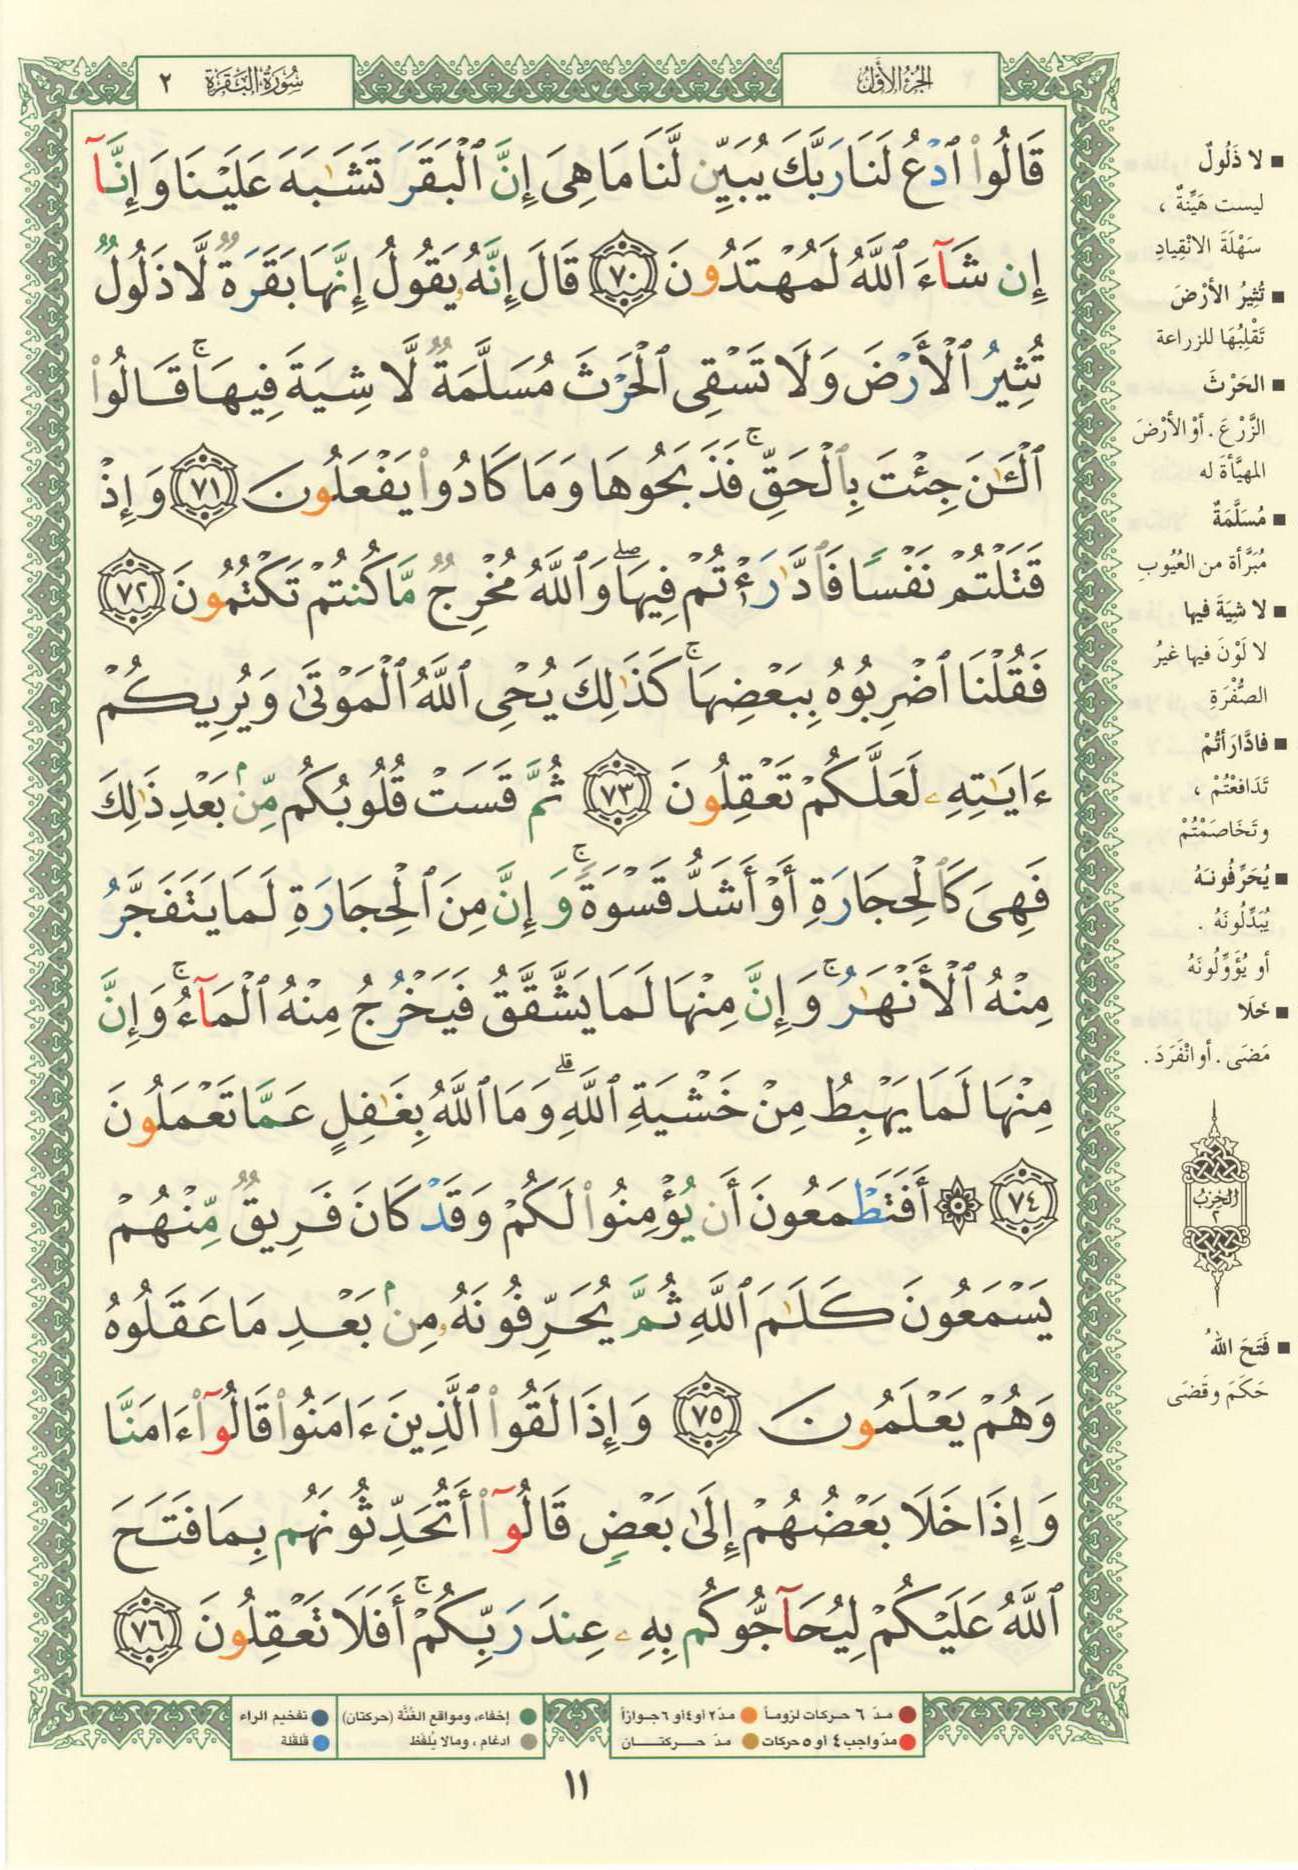 الجُزءُ الأَوَّلُ
سُورَةُ البَقَرَةِ ٢
قَالُوا۟ ٱدْعُ لَنَا رَبَّكَ يُبَيِّن لَّنَا مَا هِىَ إِنَّ ٱلْبَقَرَ تَشَـٰبَهَ عَلَيْنَا وَإِنَّآ
إِن شَآءَ ٱللَّهُ لَمُهْتَدُونَ ٧٠ قَالَ إِنَّهُۥ يَقُولُ إِنَّهَا بَقَرَةٌ لَّا ذَلُولٌ
تُثِيرُ ٱلْأَرْضَ وَلَا تَسْقِى ٱلْحَرْثَ مُسَلَّمَةٌ لَّا شِيَةَ فِيهَا ۚ قَالُوا۟
ٱلْـَٔـٰنَ جِئْتَ بِٱلْحَقِّ ۚ فَذَبَحُوهَا وَمَا كَادُوا۟ يَفْعَلُونَ ٧١ وَإِذْ
قَتَلْتُمْ نَفْسًا فَٱدَّٰرَْٰٔتُمْ فِيهَا ۖ وَٱللَّهُ مُخْرِجٌ مَّا كُنتُمْ تَكْتُمُونَ ٧٢
فَقُلْنَا ٱضْرِبُوهُ بِبَعْضِهَا ۚ كَذَٰلِكَ يُحْىِ ٱللَّهُ ٱلْمَوْتَىٰ وَيُرِيكُمْ
ءَايَـٰتِهِۦ لَعَلَّكُمْ تَعْقِلُونَ ٧٣ ثُمَّ قَسَتْ قُلُوبُكُم مِّنۢ بَعْدِ ذَٰلِكَ
فَهِىَ كَٱلْحِجَارَةِ أَوْ أَشَدُّ قَسْوَةً ۚ وَإِنَّ مِنَ ٱلْحِجَارَةِ لَمَا يَتَفَجَّرُ
مِنْهُ ٱلْأَنْهَـٰرُ ۚ وَإِنَّ مِنْهَا لَمَا يَشَّقَّقُ فَيَخْرُجُ مِنْهُ ٱلْمَآءُ ۚ وَإِنَّ
مِنْهَا لَمَا يَهْبِطُ مِنْ خَشْيَةِ ٱللَّهِ ۗ وَمَا ٱللَّهُ بِغَـٰفِلٍ عَمَّا تَعْمَلُونَ
٧٤ ۞ أَفَتَطْمَعُونَ أَن يُؤْمِنُوا۟ لَكُمْ وَقَدْ كَانَ فَرِيقٌ مِّنْهُمْ
يَسْمَعُونَ كَلَـٰمَ ٱللَّهِ ثُمَّ يُحَرِّفُونَهُۥ مِنۢ بَعْدِ مَا عَقَلُوهُ
وَهُمْ يَعْلَمُونَ ٧٥ وَإِذَا لَقُوا۟ ٱلَّذِينَ ءَامَنُوا۟ قَالُوٓا۟ ءَامَنَّا
وَإِذَا خَلَا بَعْضُهُمْ إِلَىٰ بَعْضٍ قَالُوٓا۟ أَتُحَدِّثُونَهُم بِمَا فَتَحَ
ٱللَّهُ عَلَيْكُمْ لِيُحَآجُّوكُم بِهِۦ عِندَ رَبِّكُمْ ۚ أَفَلَا تَعْقِلُونَ ٧٦
■ لا ذَلُولٌ
ليست هَيِّنةٌ ،
سَهْلَةَ الانْقِيادِ
■ تُثِيرُ الأرْضَ
تَقْلِبُهَا للزراعة
■ الحَرْثَ
الزَّرْعَ . أوْ الأرْضَ
المهيَّأةَ له
■ مُسَلَّمَةٌ
مُبَرَّأة من العُيُوبِ
■ لا شِيَةَ فيها
لا لَوْنَ فيها غيرُ
الصُّفْرَةِ
■ فادَّارَأتُمْ
تَدَافعْتُمْ ،
وتَخَاصَمْتُمْ
■ يُحَرِّفُونَهُ
يُبَدِّلُونَهُ .
أو يُؤَوِّلُونَهُ
■ خَلَا
مَضَى . أو انْفَرَدَ .
الحِزبُ
٢
■ فَتَحَ اللهُ
حَكَمَ وقَضَى
● مدّ ٦ حركات لزوماً ● مدّ ٢ أو ٤ أو ٦ جوازاً
● مدّ واجب ٤ أو ٥ حركات ● مدّ حركتان
● إخفاء، ومواقع الغُنَّة (حركتان)
● ادغام ، ومالا يُلفَظ
● تفخيم الراء
● قلقلة
١١